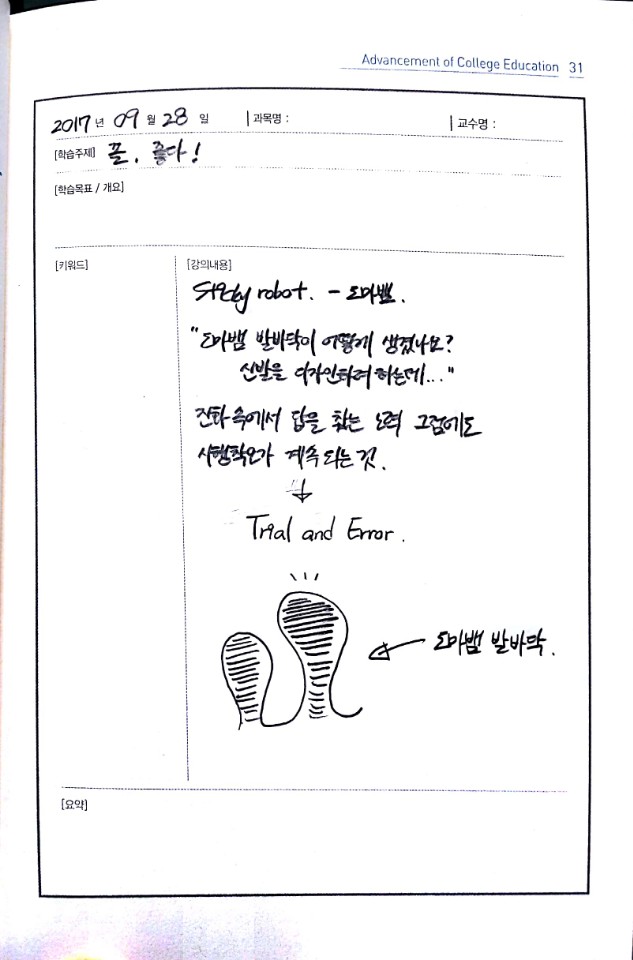 Advancement of College Education 31
2017 년 09 월 28 일 | 과목명 : | 교수명 :
[학습주제] 꼴, 좋다!
[학습목표 / 개요]
[키워드]
[강의내용]
Sticky robot. - 도마뱀.
"도마뱀 발바닥이 어떻게 생겼나요?
신발을 디자인하려 하는데..."
진화 속에서 답을 찾는 노력 그럼에도
시행착오가 계속 되는 것.
Trial and Error.
도마뱀 발바닥.
[요약]